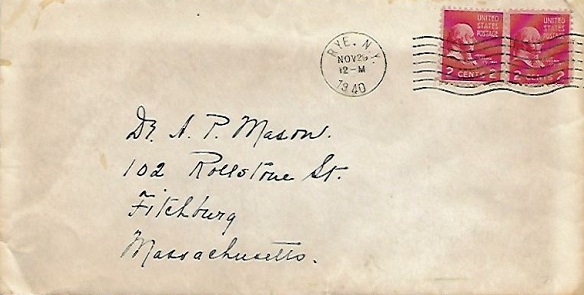 RYE. N.Y.
NOV 26
12-M
1940
UNITED STATES POSTAGE
2 CENTS 2
UNITED STATES POSTAGE
2 CENTS 2
Dr. A. P. Mason.
102 Rollstone St.
Fitchburg
Massachusetts.